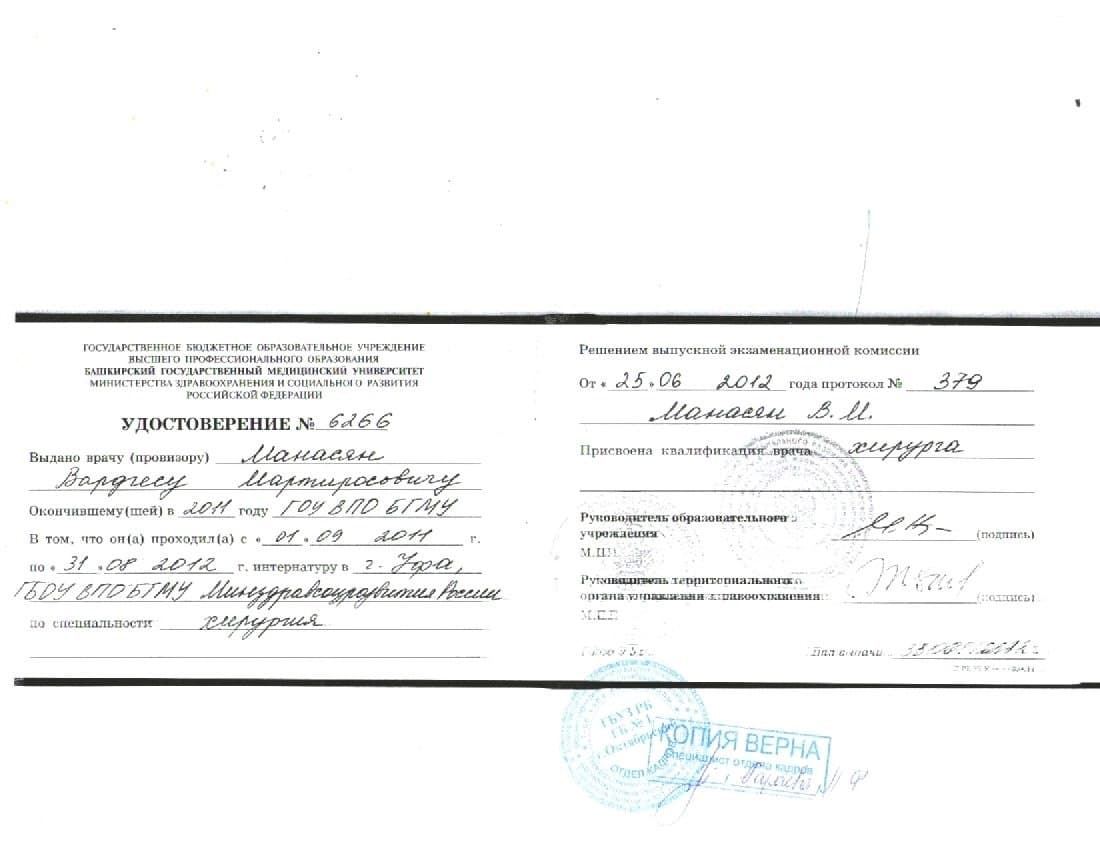 ГОСУДАРСТВЕННОЕ БЮДЖЕТНОЕ ОБРАЗОВАТЕЛЬНОЕ УЧРЕЖДЕНИЕ
ВЫСШЕГО ПРОФЕССИОНАЛЬНОГО ОБРАЗОВАНИЯ
БАШКИРСКИЙ ГОСУДАРСТВЕННЫЙ МЕДИЦИНСКИЙ УНИВЕРСИТЕТ
МИНИСТЕРСТВА ЗДРАВООХРАНЕНИЯ И СОЦИАЛЬНОГО РАЗВИТИЯ
РОССИЙСКОЙ ФЕДЕРАЦИИ
УДОСТОВЕРЕНИЕ № 6266
Выдано врачу (провизору) Манасян
Вардгесу Мартиросовичу
Окончившему(шей) в 2011 году ГОУ ВПО БГМУ
В том, что он(а) проходил(а) с «01» 09 2011 г.
по «31» 08 2012 г. интернатуру в г. Уфа,
ГБОУ ВПО БГМУ Минздравсоцразвития России
по специальности хирургия
Решением выпускной экзаменационной комиссии
От «25» 06 2012 года протокол № 379
Манасян В. М.
Присвоена квалификация врача хирурга
Руководитель образовательного
учреждения (подпись)
М.П.
Руководитель территориального
органа управления здравоохранения (подпись)
М.П.
Дата выдачи
ГБУЗ РБ
ГБ № 1
г. Октябрьский
ОТДЕЛ КАДРОВ
КОПИЯ ВЕРНА
Специалист отдела кадров